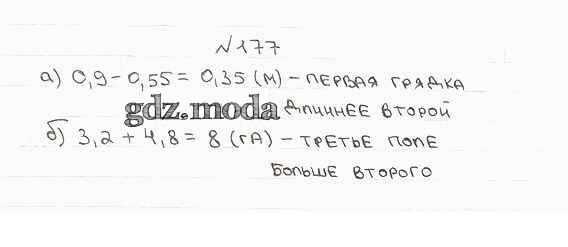 №177
а) 0,9 - 0,55 = 0,35 (м) - первая грядка
gdz.moda длиннее второй
б) 3,2 + 4,8 = 8 (га) - третье поле
больше второго